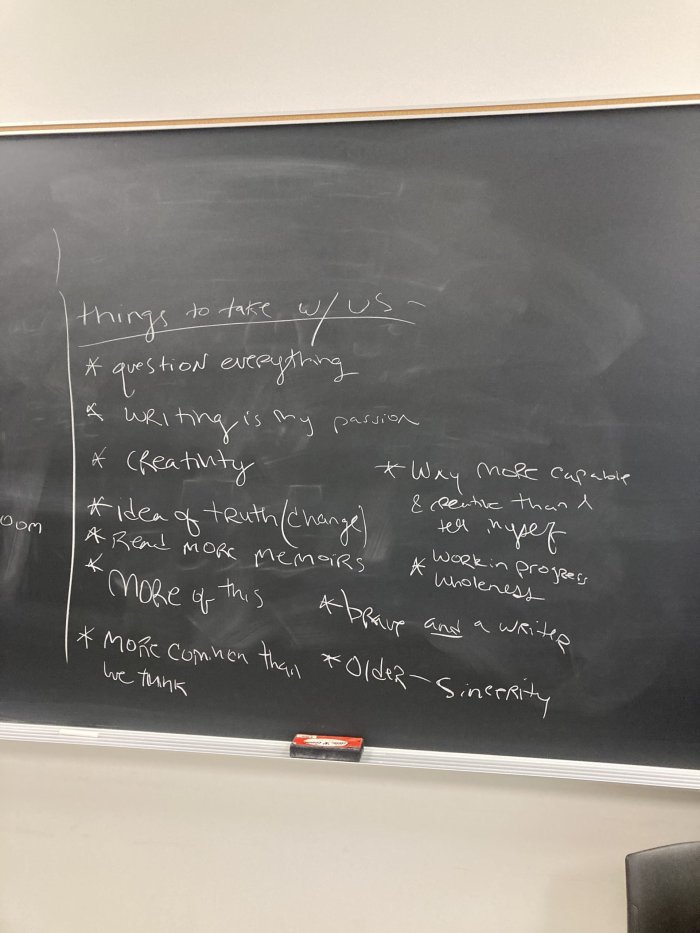 things to take w/ us -
* question everything
* writing is my passion
* Creativity
* idea of truth (change)
* Read more memoirs
* More of this
* More common than
we think
* Way more capable
& creative than I
tell myself
* Work in progress
wholeness
* brave and a writer
* Older - Sincerity
oom